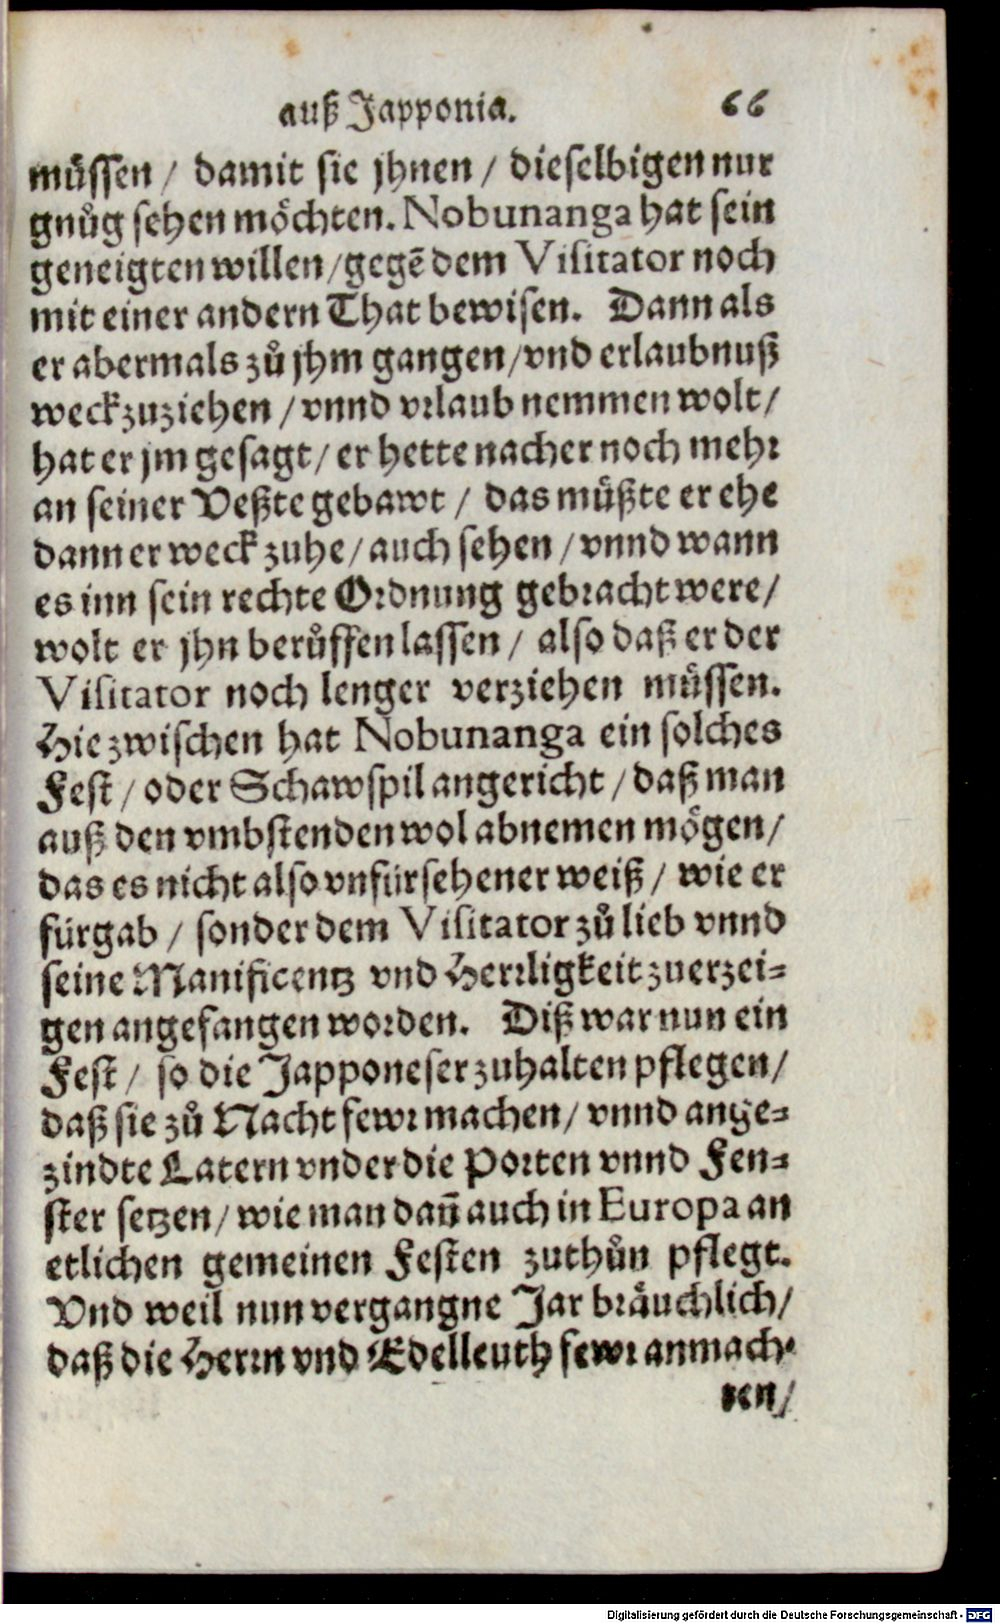 auß Japponia. 66
müssen / damit sie jhnen / dieselbigen nur
gnůg sehen möchten. Nobunanga hat sein
geneigten willen / gegē dem Visitator noch
mit einer andern That bewisen. Dann als
er abermals zů jhm gangen / vnd erlaubnuß
weckzuziehen / vnnd vrlaub nemmen wolt /
hat er jm gesagt / er hette nacher noch mehr
an seiner Veßte gebawt / das müßte er ehe
dann er weck zuhe / auch sehen / vnnd wann
es inn sein rechte Ordnung gebracht were /
wolt er jhn berůffen lassen / also daß er der
Visitator noch lenger verziehen müssen.
Hiezwischen hat Nobunanga ein solches
Fest / oder Schawspil angericht / daß man
auß den vmbstenden wol abnemen mögen /
das es nicht also vnfürsehener weiß / wie er
fürgab / sonder dem Visitator zů lieb vnnd
seine Manificentz vnd Herrligkeit zuerzei=
gen angefangen worden. Diß war nun ein
Fest / so die Japponeser zuhalten pflegen /
daß sie zů Nacht fewr machen / vnnd ange=
zindte Latern vnder die Porten vnnd Fen=
ster setzen / wie man dañ auch in Europa an
etlichen gemeinen Festen zuthůn pflegt.
Vnd weil nun vergangne Jar bräuchlich /
daß die Herrn vnd Edelleuth fewr anmach=
ten /
Digitalisierung gefördert durch die Deutsche Forschungsgemeinschaft - DFG